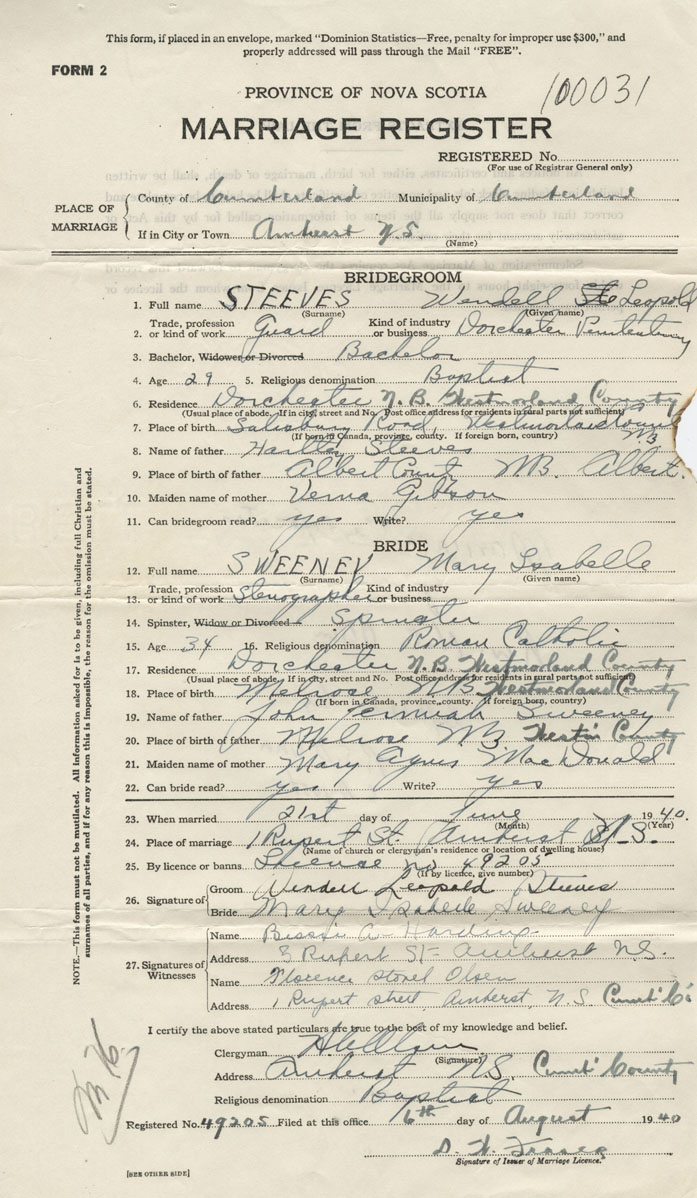 This form, if placed in an envelope, marked "Dominion Statistics—Free, penalty for improper use $300," and
properly addressed will pass through the Mail "FREE".
FORM 2
PROVINCE OF NOVA SCOTIA
100031
MARRIAGE REGISTER
REGISTERED No.
(For use of Registrar General only)
PLACE OF MARRIAGE
County of Cumberland Municipality of Cumberland
If in City or Town Amherst N.S.
(Name)
BRIDEGROOM
1. Full name STEEVES Wendell Leopold
(Surname) (Given name)
2. Trade, profession or kind of work Guard Kind of industry or business Dorchester Penitentiary
3. Bachelor, Widower or Divorced Bachelor
4. Age 29 5. Religious denomination Baptist
6. Residence Dorchester N.B. Westmorland County
(Usual place of abode. If in city, street and No. Post office address for residents in rural parts not sufficient)
7. Place of birth Salisbury Road, Westmorland County N.B.
(If born in Canada, province, county. If foreign born, country)
8. Name of father Hartley Steeves
9. Place of birth of father Albert County N.B. Albert.
10. Maiden name of mother Verna Gibson
11. Can bridegroom read? yes Write? yes
BRIDE
12. Full name SWEENEY Mary Isabelle
(Surname) (Given name)
13. Trade, profession or kind of work Stenographer Kind of industry or business
14. Spinster, Widow or Divorced Spinster
15. Age 34 16. Religious denomination Roman Catholic
17. Residence Dorchester N.B. Westmorland County
(Usual place of abode. If in city, street and No. Post office address for residents in rural parts not sufficient)
18. Place of birth Melrose N.B. Westmorland County
(If born in Canada, province, county. If foreign born, country)
19. Name of father John Jermiah Sweeney
20. Place of birth of father Melrose N.B. West'n County
21. Maiden name of mother Mary Agnes MacDonald
22. Can bride read? yes Write? yes
23. When married 21st day of June 1940.
(Month) (Year)
24. Place of marriage 1 Rupert St. Amherst N.S.
(Name of church or clergyman's residence or location of dwelling house)
25. By licence or banns License no 49205
(If by licence, give number)
26. Signature of
Groom Wendell Leopold Steeves
Bride Mary Isabelle Sweeney
27. Signatures of Witnesses
Name Bessie A. Harding
Address 3 Rupert St Amherst N.S.
Name Florence Olsen
Address 1 Rupert street, Amherst, N.S. Cumb' Co
I certify the above stated particulars are true to the best of my knowledge and belief.
Clergyman
(Signature)
Address Amherst N.S. Cumb' County
Religious denomination Baptist
Registered No. 49205 Filed at this office 6th day of August 1940
Signature of Issuer of Marriage Licence.
[SEE OTHER SIDE]
NOTE.—This form must not be mutilated. All information asked for is to be given, including full Christian and
surnames of all parties, and if for any reason this is impossible, the reason for the omission must be stated.